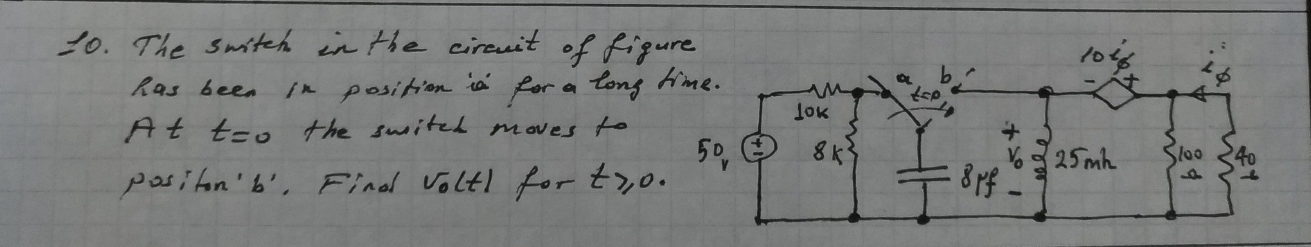 10. The switch in the circuit of figure
has been in position 'a' for a long time.
At t=0 the switch moves to
positon 'b'. Find Vo(t) for t≥0.
50v
10K
8K
a
t=0
b
8μf
+
Vo
-
25mh
10iϕ
- +
iϕ
100
Ω
40
Ω